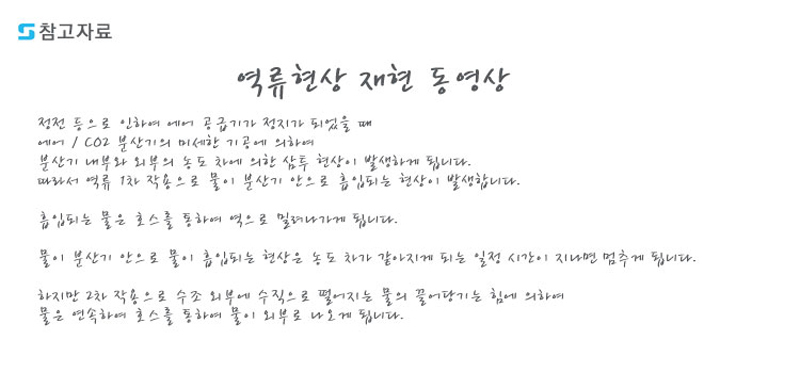 참고자료
역류현상 재현 동영상
정전 등으로 인하여 에어 공급기가 정지가 되었을 때
에어 / CO2 분산기의 미세한 기공에 의하여
분산기 내부와 외부의 농도 차에 의한 삼투 현상이 발생하게 됩니다.
따라서 역류 1차 작용으로 물이 분산기 안으로 흡입되는 현상이 발생합니다.
흡입되는 물은 호스를 통하여 역으로 밀려나가게 됩니다.
물이 분산기 안으로 물이 흡입되는 현상은 농도 차가 같아지게 되는 일정 시간이 지나면 멈추게 됩니다.
하지만 2차 작용으로 수조 외부에 수직으로 떨어지는 물의 끌어당기는 힘에 의하여
물은 연속하여 호스를 통하여 물이 외부로 나오게 됩니다.